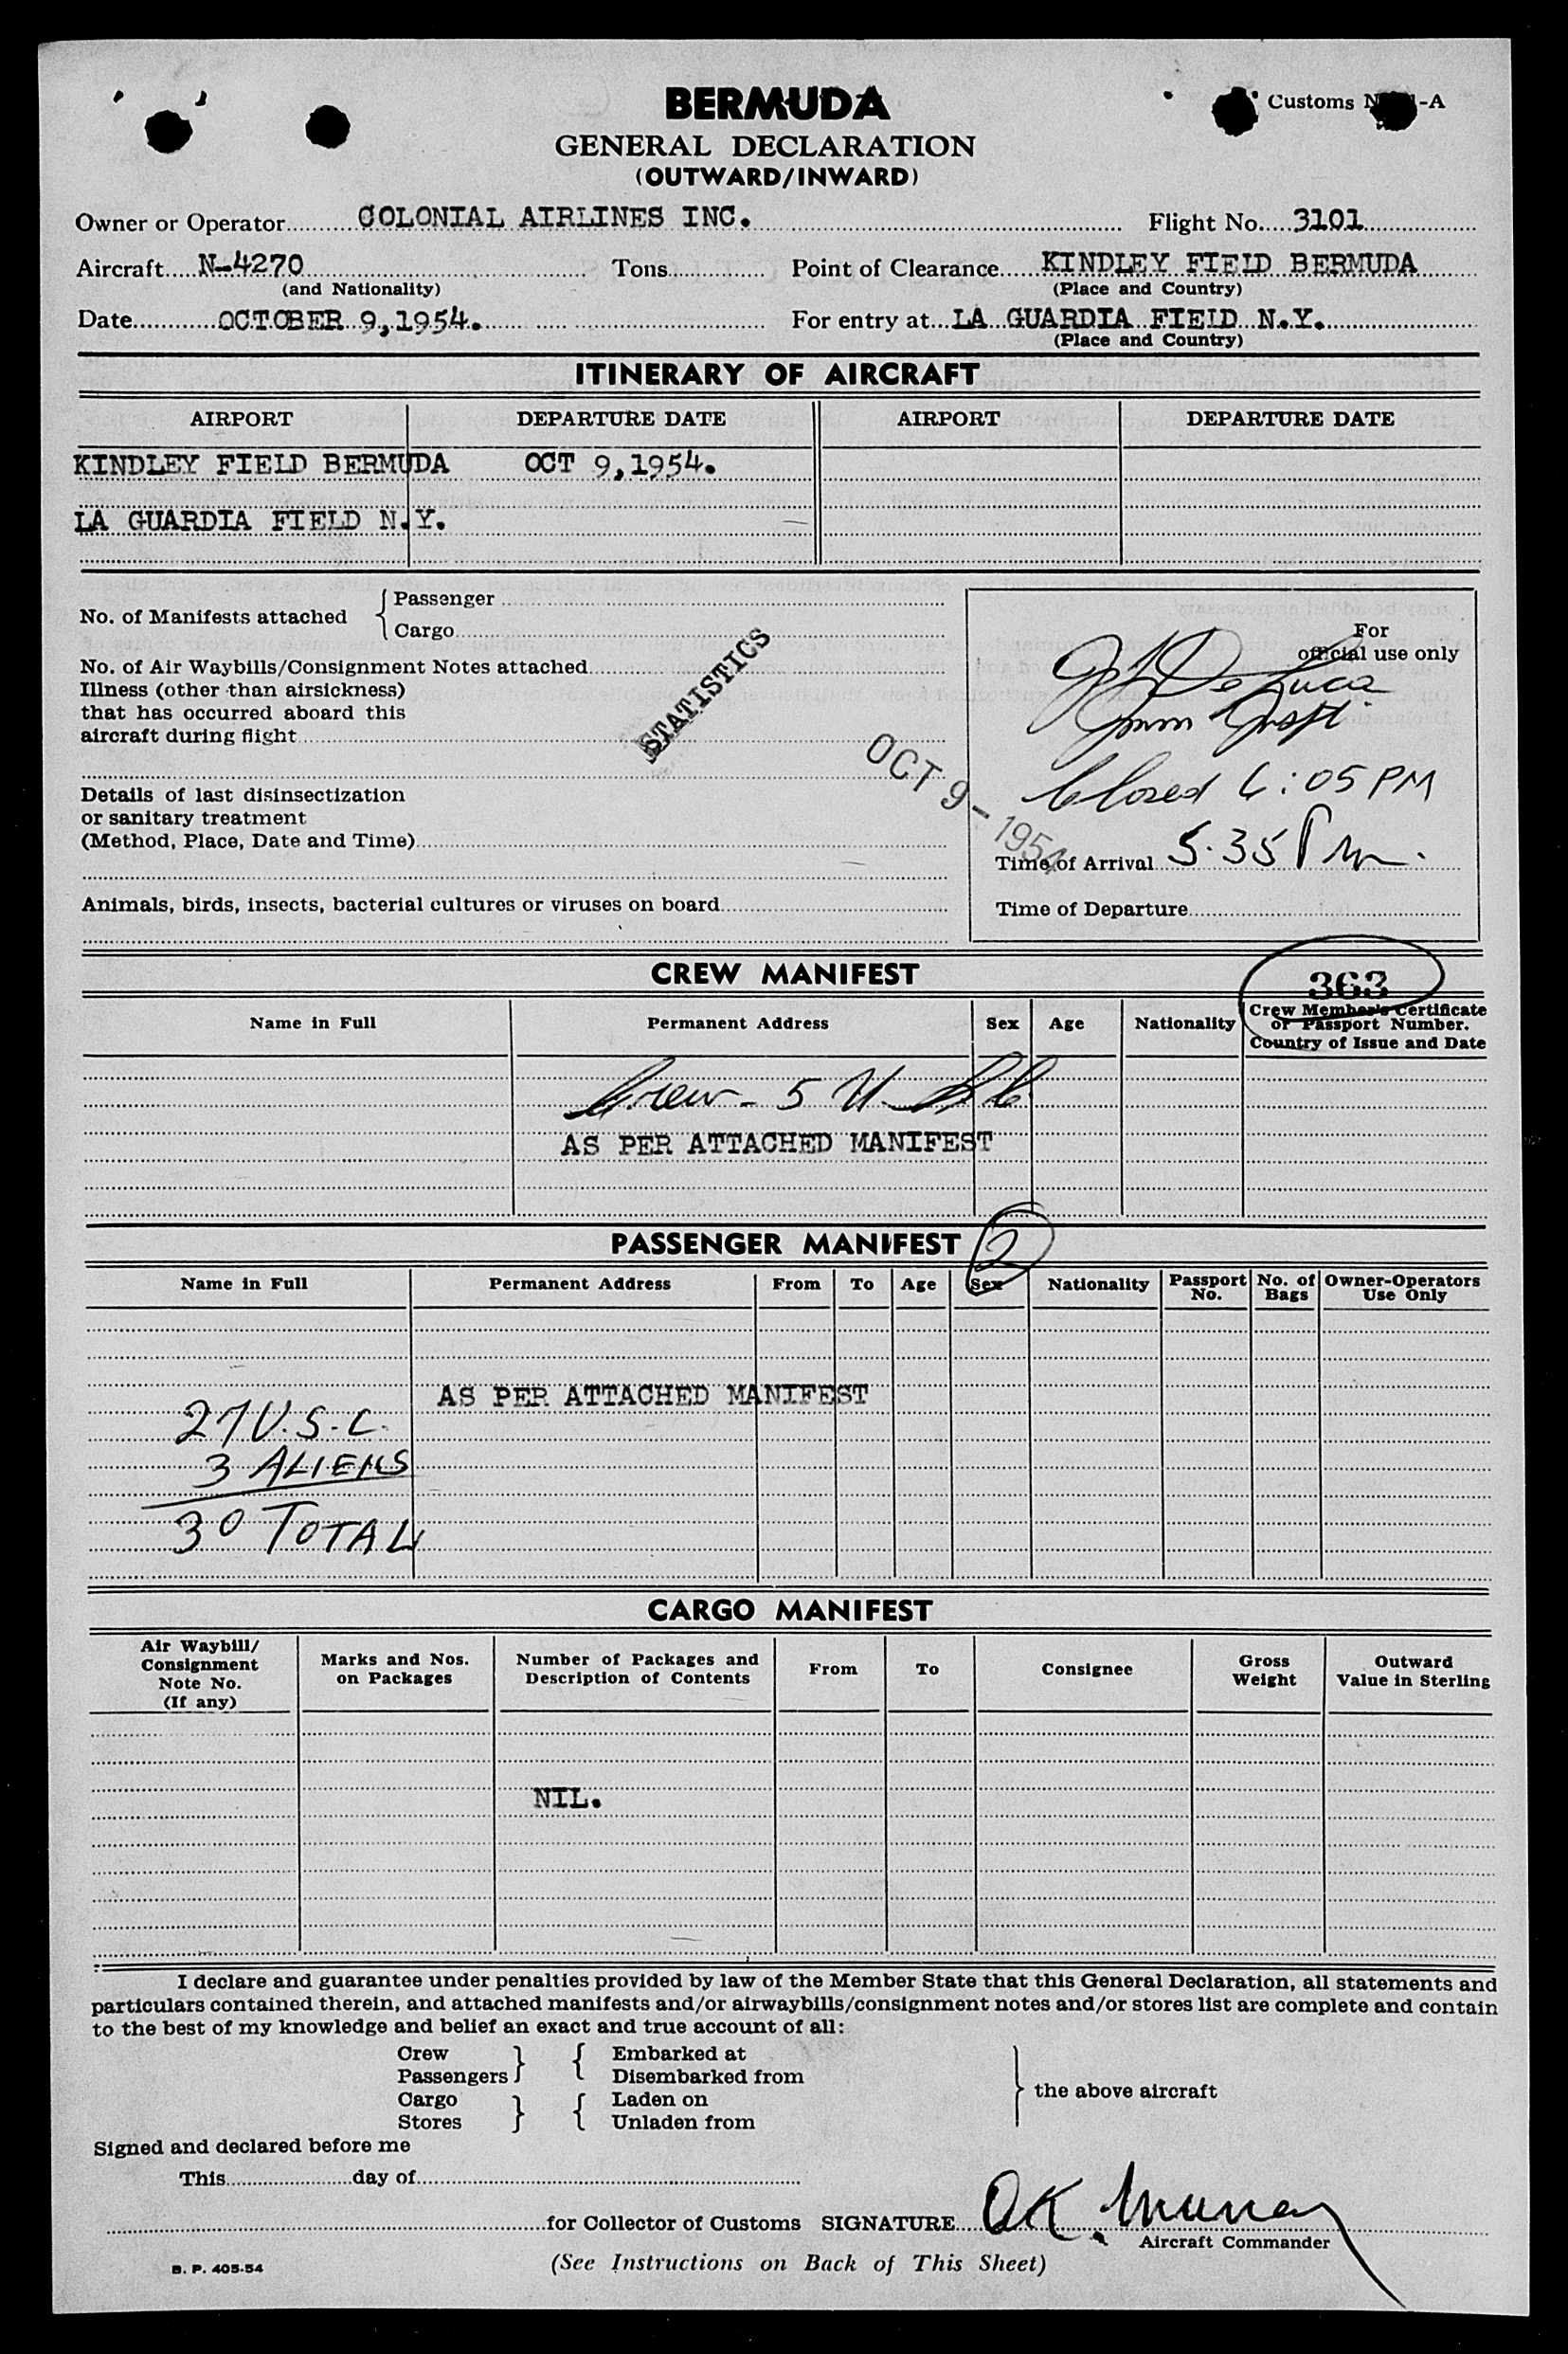 BERMUDA
Customs N -A
GENERAL DECLARATION
(OUTWARD/INWARD)
Owner or Operator COLONIAL AIRLINES INC. Flight No. 3101
Aircraft N-4270 Tons Point of Clearance KINDLEY FIELD BERMUDA
(and Nationality) (Place and Country)
Date OCTOBER 9,1954. For entry at LA GUARDIA FIELD N.Y.
(Place and Country)
ITINERARY OF AIRCRAFT
AIRPORT DEPARTURE DATE AIRPORT DEPARTURE DATE
KINDLEY FIELD BERMUDA OCT 9,1954.
LA GUARDIA FIELD N.Y.
No. of Manifests attached { Passenger
Cargo
No. of Air Waybills/Consignment Notes attached
Illness (other than airsickness)
that has occurred aboard this
aircraft during flight
STATISTICS
Details of last disinsectization
or sanitary treatment
(Method, Place, Date and Time)
Animals, birds, insects, bacterial cultures or viruses on board
OCT 9 - 1954
For
official use only
De Luca
Imm Inspt
Closed 6:05 PM
Time of Arrival 5.35 Pm.
Time of Departure
CREW MANIFEST
363
Name in Full Permanent Address Sex Age Nationality Crew Member's Certificate
or Passport Number.
Country of Issue and Date
Crew - 5 U.S.C.
AS PER ATTACHED MANIFEST
PASSENGER MANIFEST 2
Name in Full Permanent Address From To Age Sex Nationality Passport No. No. of Bags Owner-Operators Use Only
AS PER ATTACHED MANIFEST
27 U.S.C.
3 ALIENS
30 TOTAL
CARGO MANIFEST
Air Waybill/ Consignment Note No. (If any) Marks and Nos. on Packages Number of Packages and Description of Contents From To Consignee Gross Weight Outward Value in Sterling
NIL.
I declare and guarantee under penalties provided by law of the Member State that this General Declaration, all statements and
particulars contained therein, and attached manifests and/or airwaybills/consignment notes and/or stores list are complete and contain
to the best of my knowledge and belief an exact and true account of all:
Crew } { Embarked at
Passengers Disembarked from
Cargo } { Laden on } the above aircraft
Stores Unladen from
Signed and declared before me
This day of
for Collector of Customs SIGNATURE OK. Murray
Aircraft Commander
B. P. 405-54 (See Instructions on Back of This Sheet)